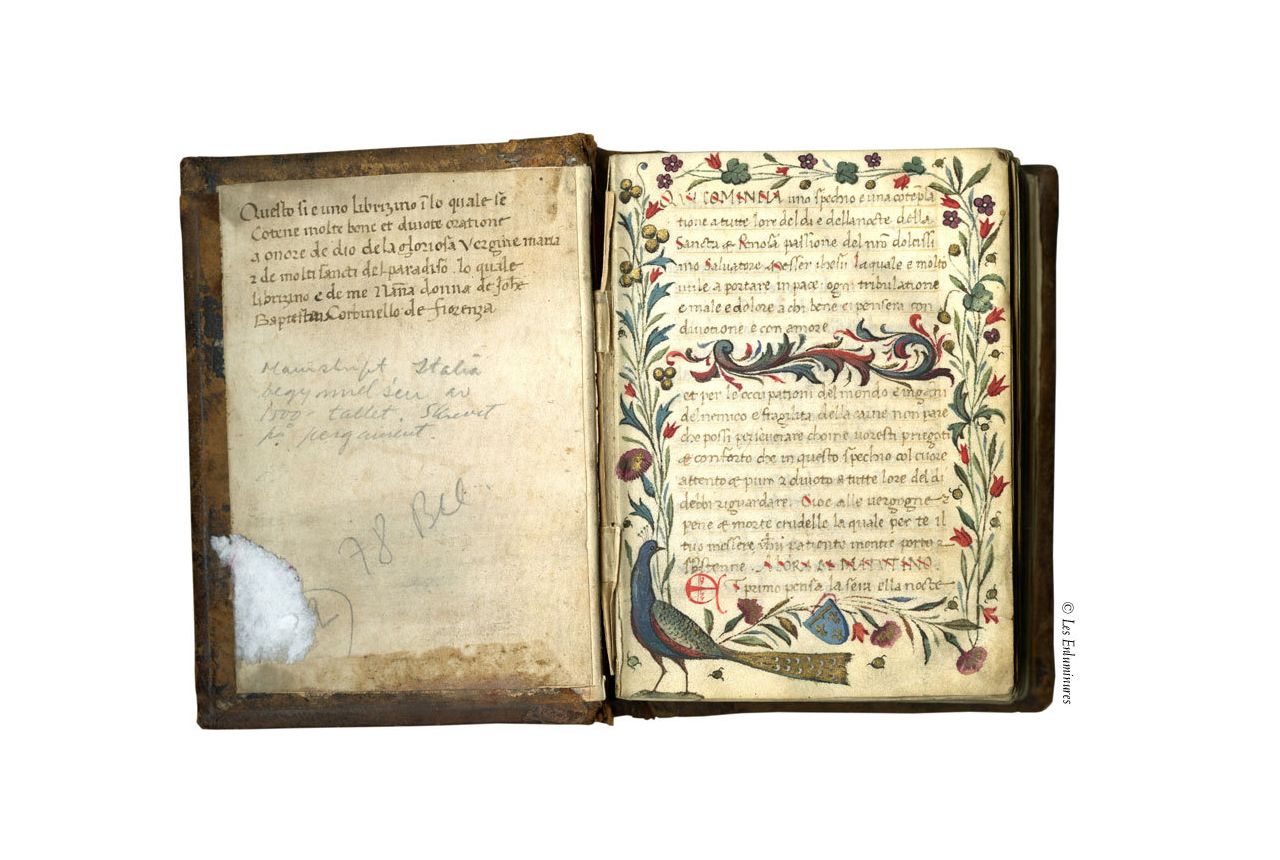 Questo si e uno librizino ĩ lo quale se
Cotene molte bone et divote oratione
a onore de dio de la gloriosa Vergine maria
z de molti sancti del paradiso lo quale
librizino e de me Nãna donna de Johe
Baptista Corbinello de fiorenza
Manuskript Italia
begynnelsen av
1500-tallet. Skrevet
på pergament.
78 Bll.
QVI COMINCIA uno spechio e una cotẽpla
tione a tutte lore del di e della nocte della
Sancta & Penosa passione del nr̃o dolcissi
mo Salvatore Messer ihesu la quale e molto
utile a portare in pace ogni tribulatione
e male e dolore a chi bene ci pensera con
divotione e con amore
et per le occupationi del mondo e ingegni
del nemico e fragilita della carne non pare
che possi perseverare chome voresti priegoti
& conforto che in questo spechio col cuore
attento & puro z divoto a tutte lore del di
debbi riguardare. Cioe alle vergogne z
pene & morte crudelle la quale per te il
tuo messere patiente mente porto z
sostenne. A LORA DEL MATUTINO.
ET primo pensa la sera ella nocte
© Les Enluminures